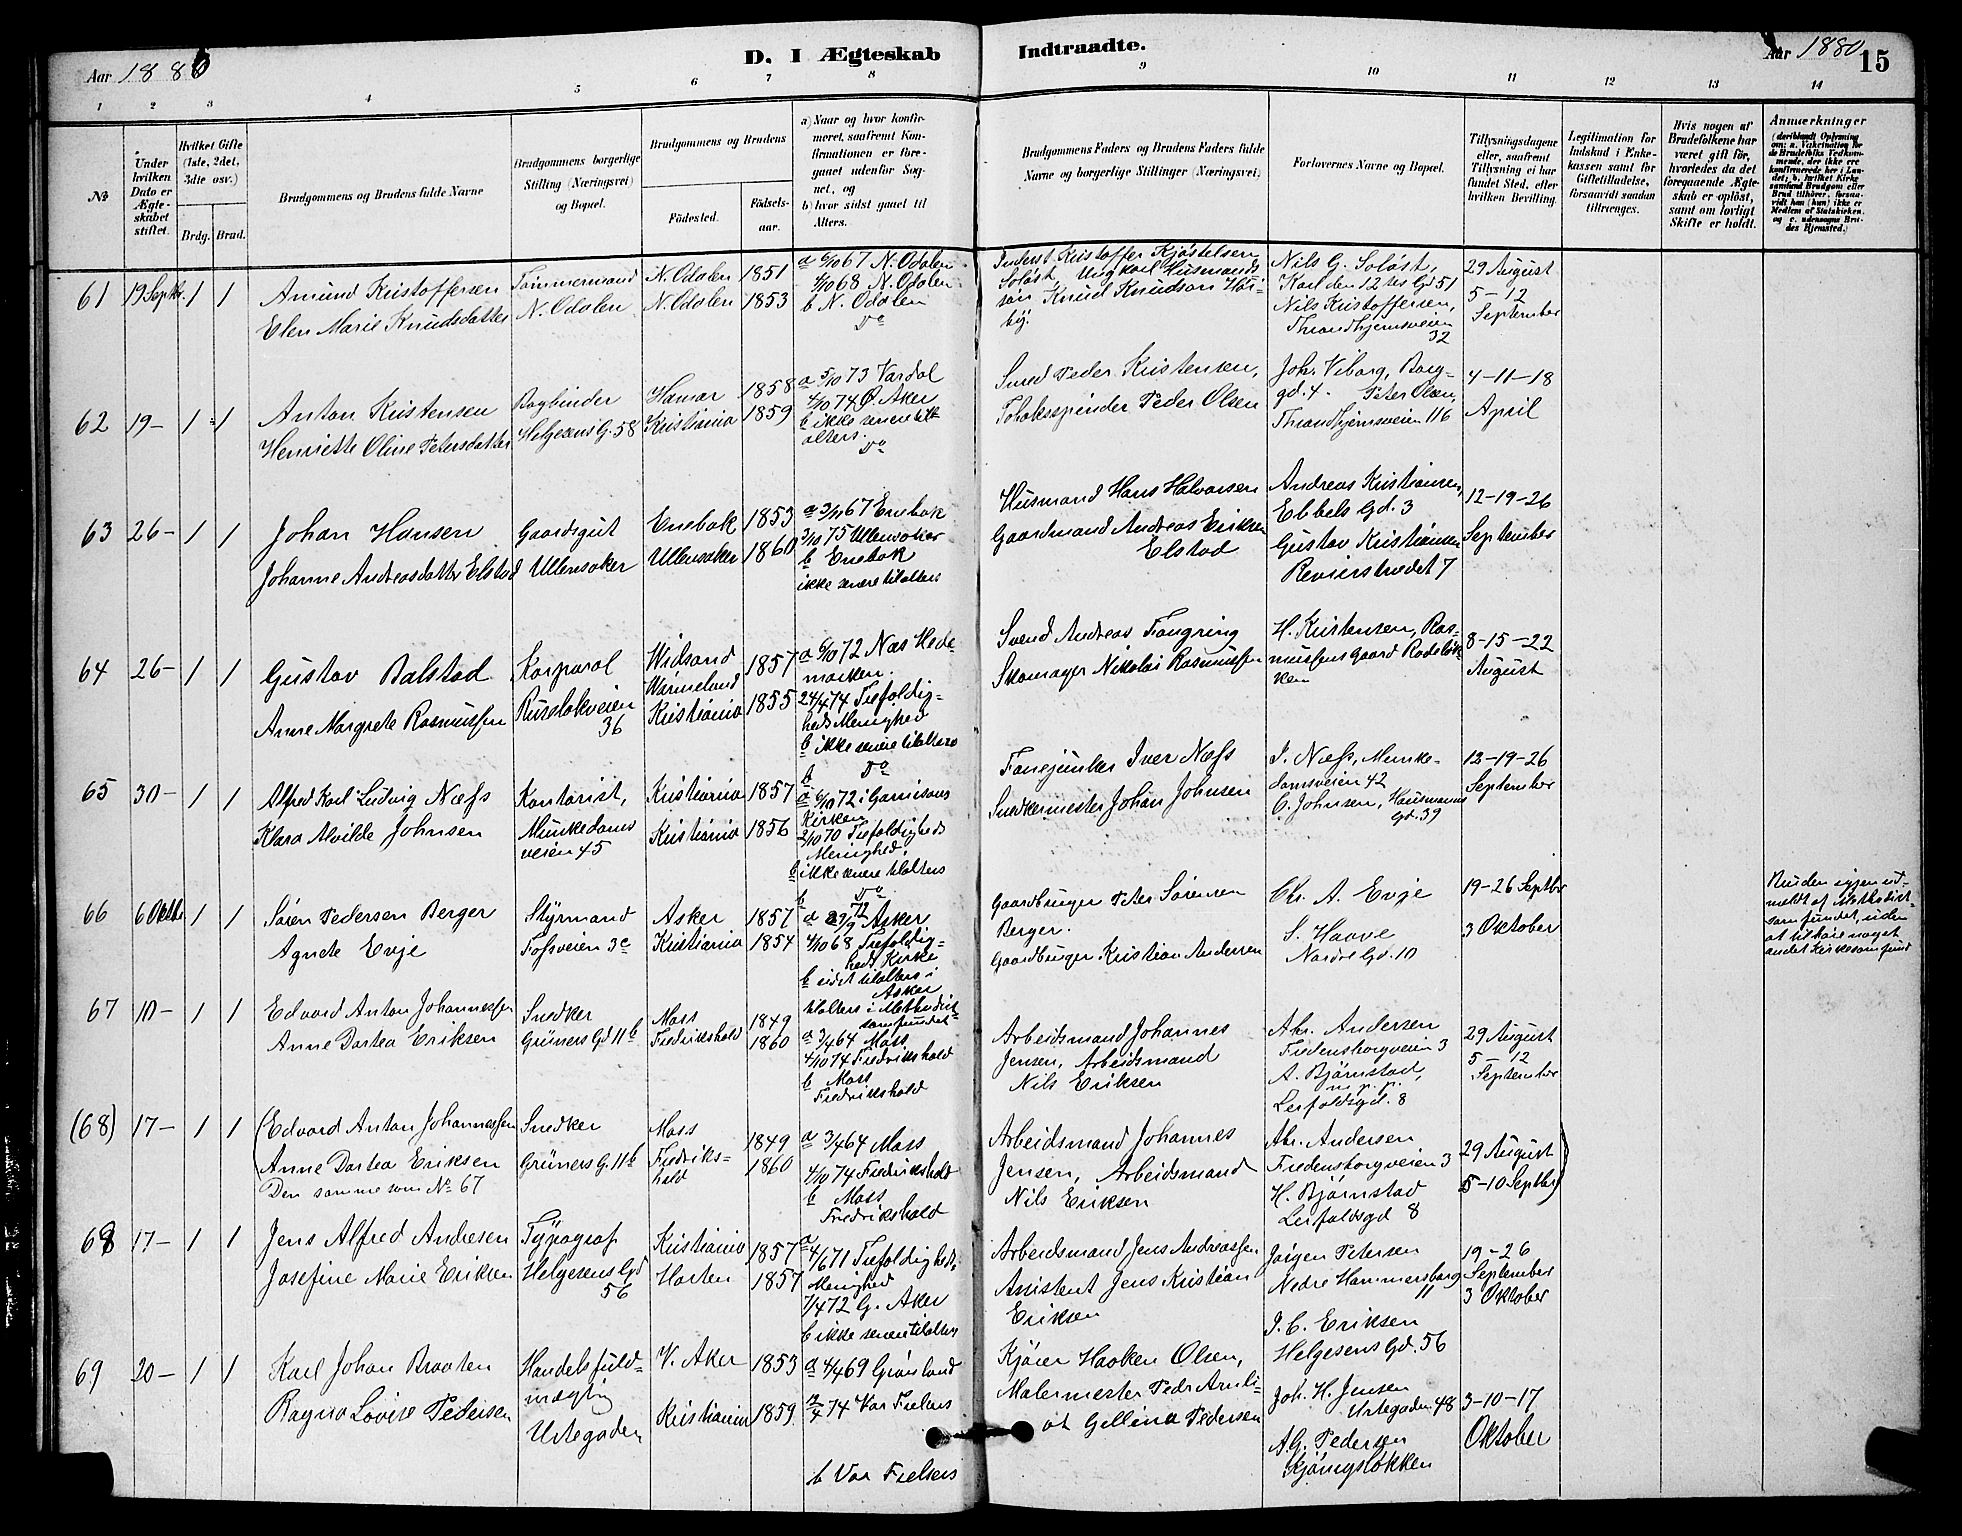 Aar 1880
D. I Ægteskab Indtraadte.
Aar 1880
15
1 2 3 4 5 6 7 8 9 10 11 12 13 14
No
Under hvilken Dato er Ægteskabet stiftet.
Hvilket Gifte (1ste, 2det, 3die osv.)
Brdg. Brud.
Brudgommens og Brudens fulde Navne
Brudgommens borgerlige Stilling (Næringsvei) og Bopæl.
Brudgommens og Brudens
Fødested.
Fødselsaar.
a) Naar og hvor konfirmeret, saafremt Konfirmationen er foregaaet udenfor Sognet, og
b) hvor sidst gaaet til Alters.
Brudgommens Faders og Brudens Faders fulde Navne og borgerlige Stillinger (Næringsvei)
Forlovernes Navne og Bopæl.
Tillysningsdagene eller, saafremt Tillysning ei har fundet Sted, efter hvilken Bevilling.
Legitimation for Indskud i Enkekassen samt for Giftetilladelse, forsaavidt saadan tiltrænges.
Hvis nogen af Brudefolkene har været gift før, hvorledes da det foregaaende Ægteskab er opløst, samt om lovligt Skifte er holdt.
Anmærkninger
(deriblandt Oplysning om: a. Vakcination for de Brudefolks Vedkommende, der ikke ere konfirmerede her i Landet; b. hvilket Kirkesamfund Brudgom eller Brud tilhører, forsaavidt han (hun) ikke er Medlem af Statskirken, og c. udensogns Brudes Hjemsted.)
61 19 Septbr. 1 1
Amund Kristoffersen
Elen Marie Knudsdatter
Tømmermand
N. Odalen
N. Odalen 1851
N. Odalen 1853
a 6/10 67 N. Odalen
4/10 68 N. Odalen
b N. Odalen
Do
Inderst Kristoffer Kjøstelsen
Soløst, Ungkarl Husmands
søn Knud Knudson Høi-
by.
Nils G. Soløst,
Karl den 12tes Gd 51
Nils Kristoffersen,
Throndhjemsveien
32
29 August
5-12
September
62 19- 1 1
Anton Kristensen
Henriette Oline Petersdatter
Bogbinder
Helgesens G. 58
Hamar 1858
Kristiania 1859
a 5/10 73 Vardal
4/10 74 Ø. Aker
b ikke senere til
alters.
Do
Smed Peder Kristensen,
Tobaksspinder Peder Olsen
Joh. Viborg, Borg-
gd. 4. Peter Olsen,
Throndhjemsveien 116
4-11-18
April
63 26- 1 1
Johan Hansen
Johanne Andreasdatter Elstad
Gaardsgut
Ullensaker
Enebak 1853
Ullensaker 1860
67 Enebak
3/10 75 Ullensaker
b Enebak
ikke senere tilalters
Husmand Hans Halvorsen
Gaardmand Andreas Eriksen
Elstad
Andreas Kristiansen,
Ebbels Gd. 3
Gustav Kristiansen
Revierstrædet 7
12-19-26
September
64 26- 1 1
Gustav Balstad
Anne Margrete Rasmussen
Korporal
Ruseløkveien
36
Widsand
Wärmeland 1857
Kristiania 1855
a 6/10 72 Næs Hede-
marken.
24/4 74 Trefoldig-
heds Menighed
b ikke senere tilalters
Do
Svend Andreas Fongring
Skomager Nikolai Rasmussen
H. Kristensen, Ras-
mussens Gaard Rodeløk-
ken
8-15-22
August
65 30- 1 1
Alfred Karl Ludvig Næss
Klara Alvilde Johnsen
Kontorist,
Munkedams
veien 45
Kristiania 1857
Kristiania 1856
a 6/10 72 i Garnisons
Kirken
2/10 70 Trefoldigheds
Menighed.
b ikke senere tilalters
Do
Fanejunker Iver Næss
Snedkermester Johan Johnsen
I. Næss, Munke-
damsveien 42
C. Johnsen, Hausmanns
Gd. 39
12-19-26
September
66 6 Oktbr 1 1
Søren Pedersen Berger
Agnete Evje
Styrmand
Fossveien 3c
Asker 1857
Kristiania 1854
a 29/9 72 Asker
4/10 68 Trefoldig-
heds Kirke
b sidst tilalters i
Asker
tilalters i Methodist-
samfundet
Gaardbruger Peter Sørensen
Berger.
Gaardbruger Kristian Andersen
Chr. A. Evje
S. Haave
Nordre Gd. 10
19-26 Septbr
3 Oktober
Bruden igjen ud-
meldt af Methodist-
samfundet, uden
at tilhøre noget
andet Kirkesamfund
67 10- 1 1
Edvard Anton Johannessen
Anne Dortea Eriksen
Snedker
Grüners Gd 11b
Moss 1849
Fredrikshald 1860
a 3/4 64 Moss
4/10 74 Fredrikshald
b Moss
Fredrikshald
Arbeidsmand Johannes
Jensen, Arbeidsmand
Nils Eriksen
Chr. Andersen
Fredensborgveien 3
A. Bjørnstad,
m. p. p.
Leifoldsgd. 8
29 August
5-12
September
(68) 17- 1 1
(Edvard Anton Johannessen
Anne Dortea Eriksen
Den samme som No 67
Snedker
Grüners G. 11b
Moss 1849
Fredriks-
hald 1860
a 3/4 64 Moss
4/10 74 Fredrikshald
b Moss
Fredrikshald
Arbeidsmand Johannes
Jensen, Arbeidsmand
Nils Eriksen
Chr. Andersen
Fredensborgveien 3
H. Bjørnstad
Leifoldsgd 8
29 August
5-10 Septbr)
68 17- 1 1
Jens Alfred Andresen
Josefine Marie Eriksen
Typograf
Helgesens Gd
56
Kristiania 1857
Horten 1857
a 4/6 71 Trefoldigheds
Menighed
7/4 72 G. Aker
b ikke senere tilalters
Arbeidsmand Jens Andreassen
Assistent Jens Kristian
Eriksen
Jørgen Petersen
Nedre Hammersborg
11
I. C. Eriksen
Helgesens Gd. 56
19-26
September
3 Oktober
69 20- 1 1
Karl Johan Braaten
Ragna Lovise Pedersen
Handelsfuld-
mægtig
Urtegaden
V. Aker 1853
Kristiania 1859
a 4/4 69 Grønland
74 Vor Frelsers
b Vor Frelsers
Kjører Haaken Olsen,
Malermester Peder Amli-
ot Gellina Pedersen
Joh. H. Jensen
Urtegaden 48
A. G. Pedersen
Kjøringsløkken
3-10-17
Oktober